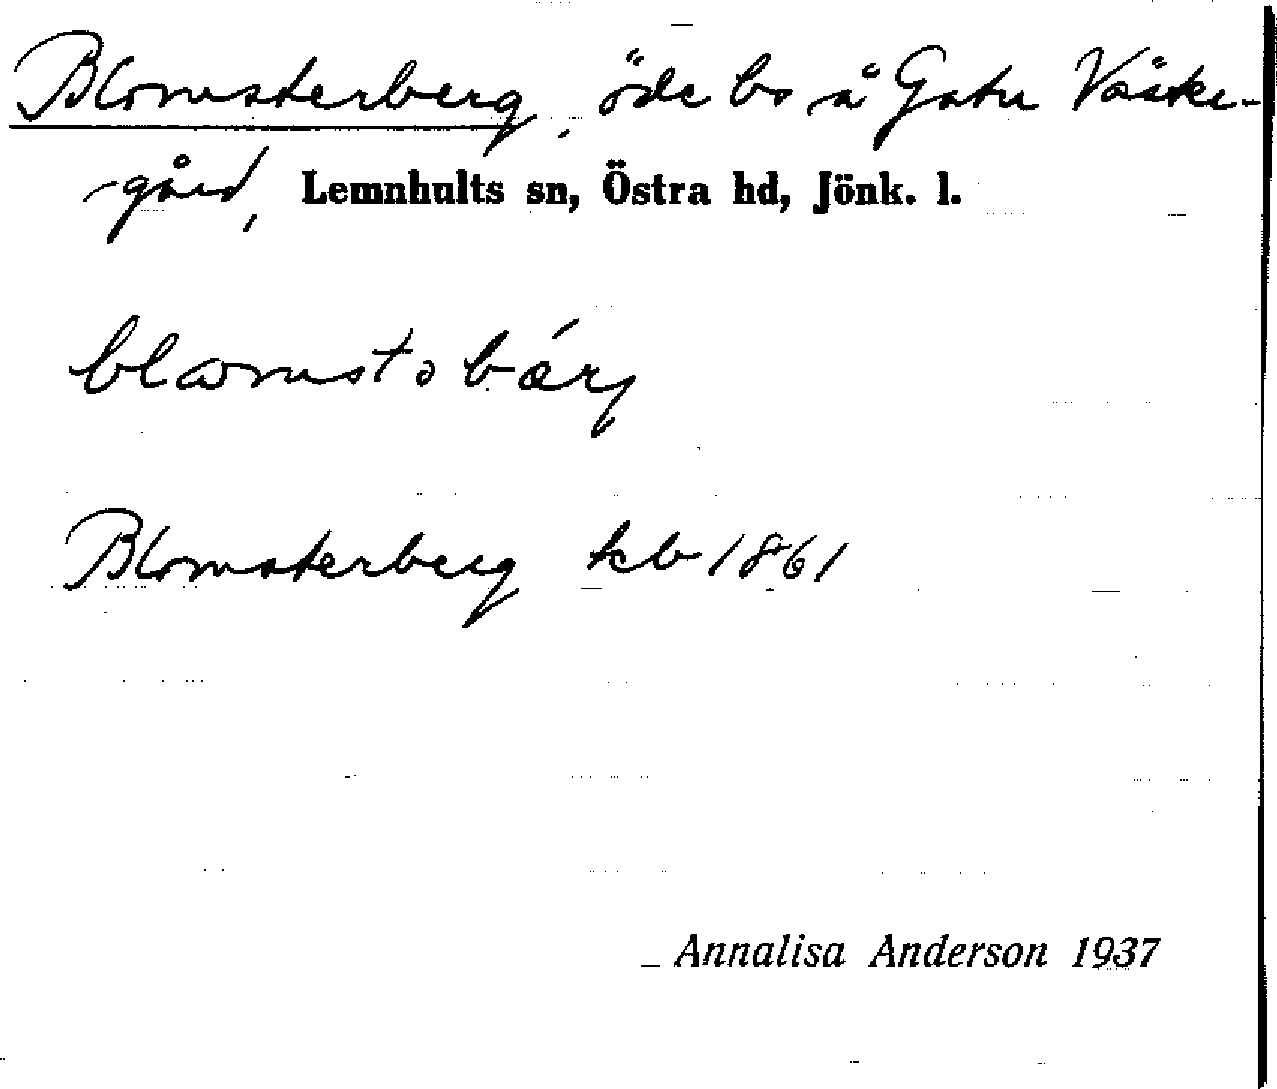 Blomsterberg, öde bs å Gatu Västre-
gård, Lemnhults sn, Östra hd, Jönk. l.
blomstəbárj
Blomsterberg kb 1861
Annalisa Anderson 1937